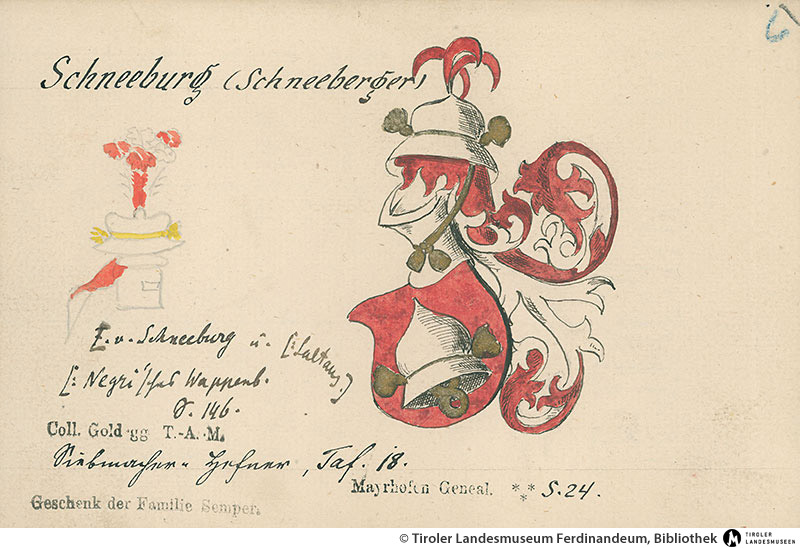 Schneeburg (Schneeberger)
F. v. Schneeburg u. [: Saltaus :]
[: Negri'sches Wappenb.
S. 146.
Coll. Goldegg T.-A.-M.
Siebmacher-Hefner, Taf. 18.
Mayrhofen Geneal. *** S. 24.
Geschenk der Familie Semper.
© Tiroler Landesmuseum Ferdinandeum, Bibliothek
TIROLER
LANDESMUSEEN